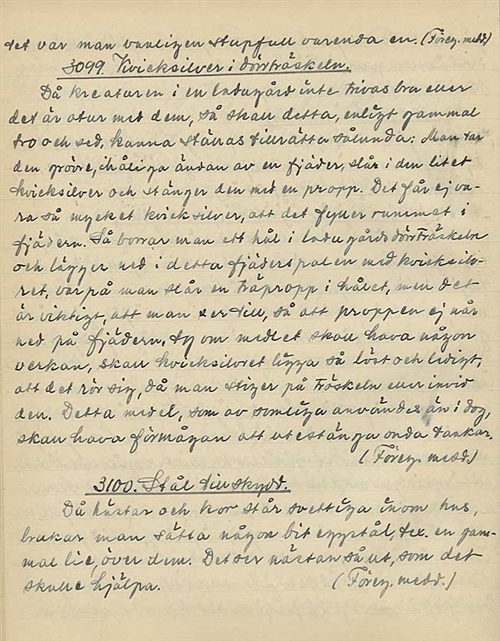 det var man vanligen stupfull varenda en. (Föreg. medd.)
3099. Kvicksilver i dörrtröskeln.
Då kreaturen i en ladugård inte trivas bra eller
det är otur med dem, så skall detta, enligt gammal
tro och sed, kunna ställas tillrätta sålunda: Man tar
den grövre, ihåliga ändan av en fjäder, slår i den litet
kvicksilver och stänger den med en propp. Det får ej va-
ra så mycket kvicksilver, att det fyller rummet i
fjädern. Så borrar man ett hål i ladugårdsdörrtröskeln
och lägger ned i detta fjäderspolen med kvicksilv-
ret, varpå man slår en träpropp i hålet, men det
är viktigt, att man ser till, så att proppen ej når
ned på fjädern, ty om medlet skall hava någon
verkan, skall kvicksilvret ligga så löst och ledigt,
att det rör sig, då man stiger på tröskeln eller invid
den. Detta medel, som av somliga användes än i dag,
skall hava förmågan att utestänga onda tankar.
(Föreg. medd.)
3100. Stål till skydd.
Då hästar och kor står svettiga inom hus,
brukar man sätta någon bit eggstål, t.ex. en gam-
mal lie, över dem. Det ser nästan så ut, som det
skulle hjälpa. (Föreg. medd.)